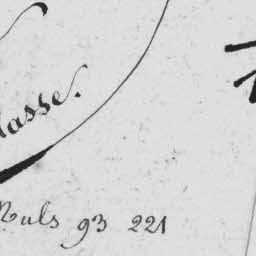 lasse.
Nuls 93 221